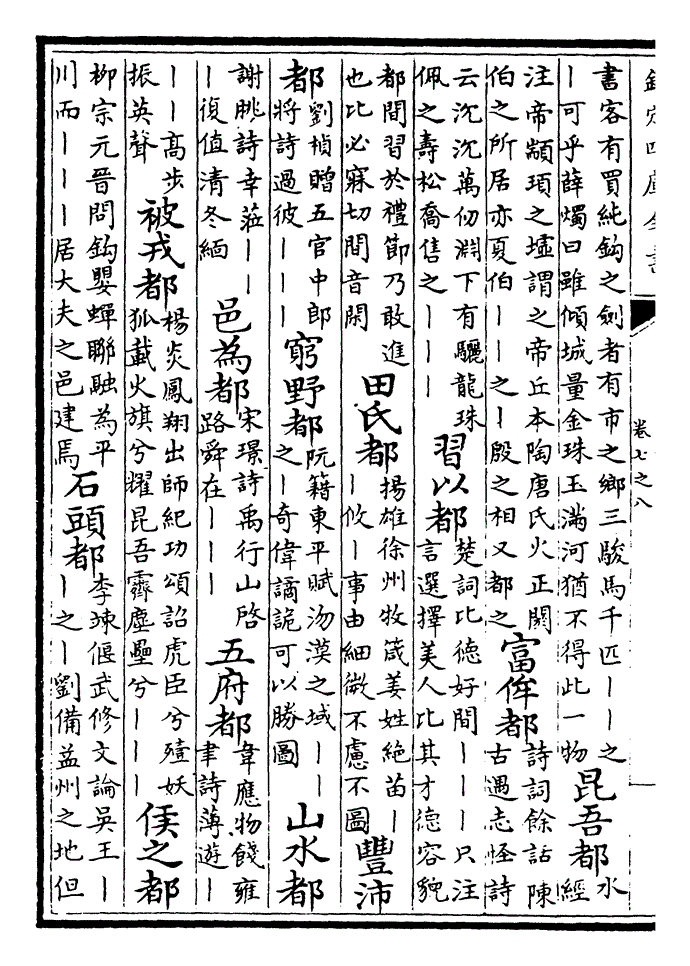 欽定四庫全書
卷七之八
書客有買純鈎之劍者有市之鄉三駿馬千匹丨丨之
丨可乎薛燭曰雖傾城量金珠玉滿河猶不得此一物
昆吾都
水
經
注帝顓頊之墟謂之帝丘本陶唐氏火正閼
伯之所居亦夏伯丨丨之丨殷之相又都之
富侔都
詩詞餘話陳
古遇志怪詩
云沉沉萬仞淵下有驪龍珠
佩之壽松喬售之丨丨丨
習以都
楚詞比德好閒丨丨丨只注
言選擇美人比其才德容貌
都閒習於禮節乃敢進
也比必寐切閒音閑
田氏都
揚雄徐州牧箴姜姓絶苗丨
丨攸丨事由細微不慮不圖
豐沛
都
劉楨贈五官中郎
將詩過彼丨丨丨
窮野都
阮籍東平賦沕漠之域丨丨
之丨奇偉譎詭可以勝圖
山水都
謝眺詩幸莅丨丨
丨復值清冬緬
邑為都
宋璟詩禹行山啓
路舜在丨丨丨
五府都
韋應物餞雍
聿詩薄遊丨
丨丨高步
振英聲
被戎都
楊炎鳳翔出師紀功頌詔虎臣兮殪妖
狐載火旗兮耀昆吾霽塵壘兮丨丨丨
侯之都
柳宗元晉問鈎嬰蟬聯融為平
川而丨丨丨居大夫之邑建焉
石頭都
李竦偃武修文論吳王丨
丨之丨劉備益州之地但